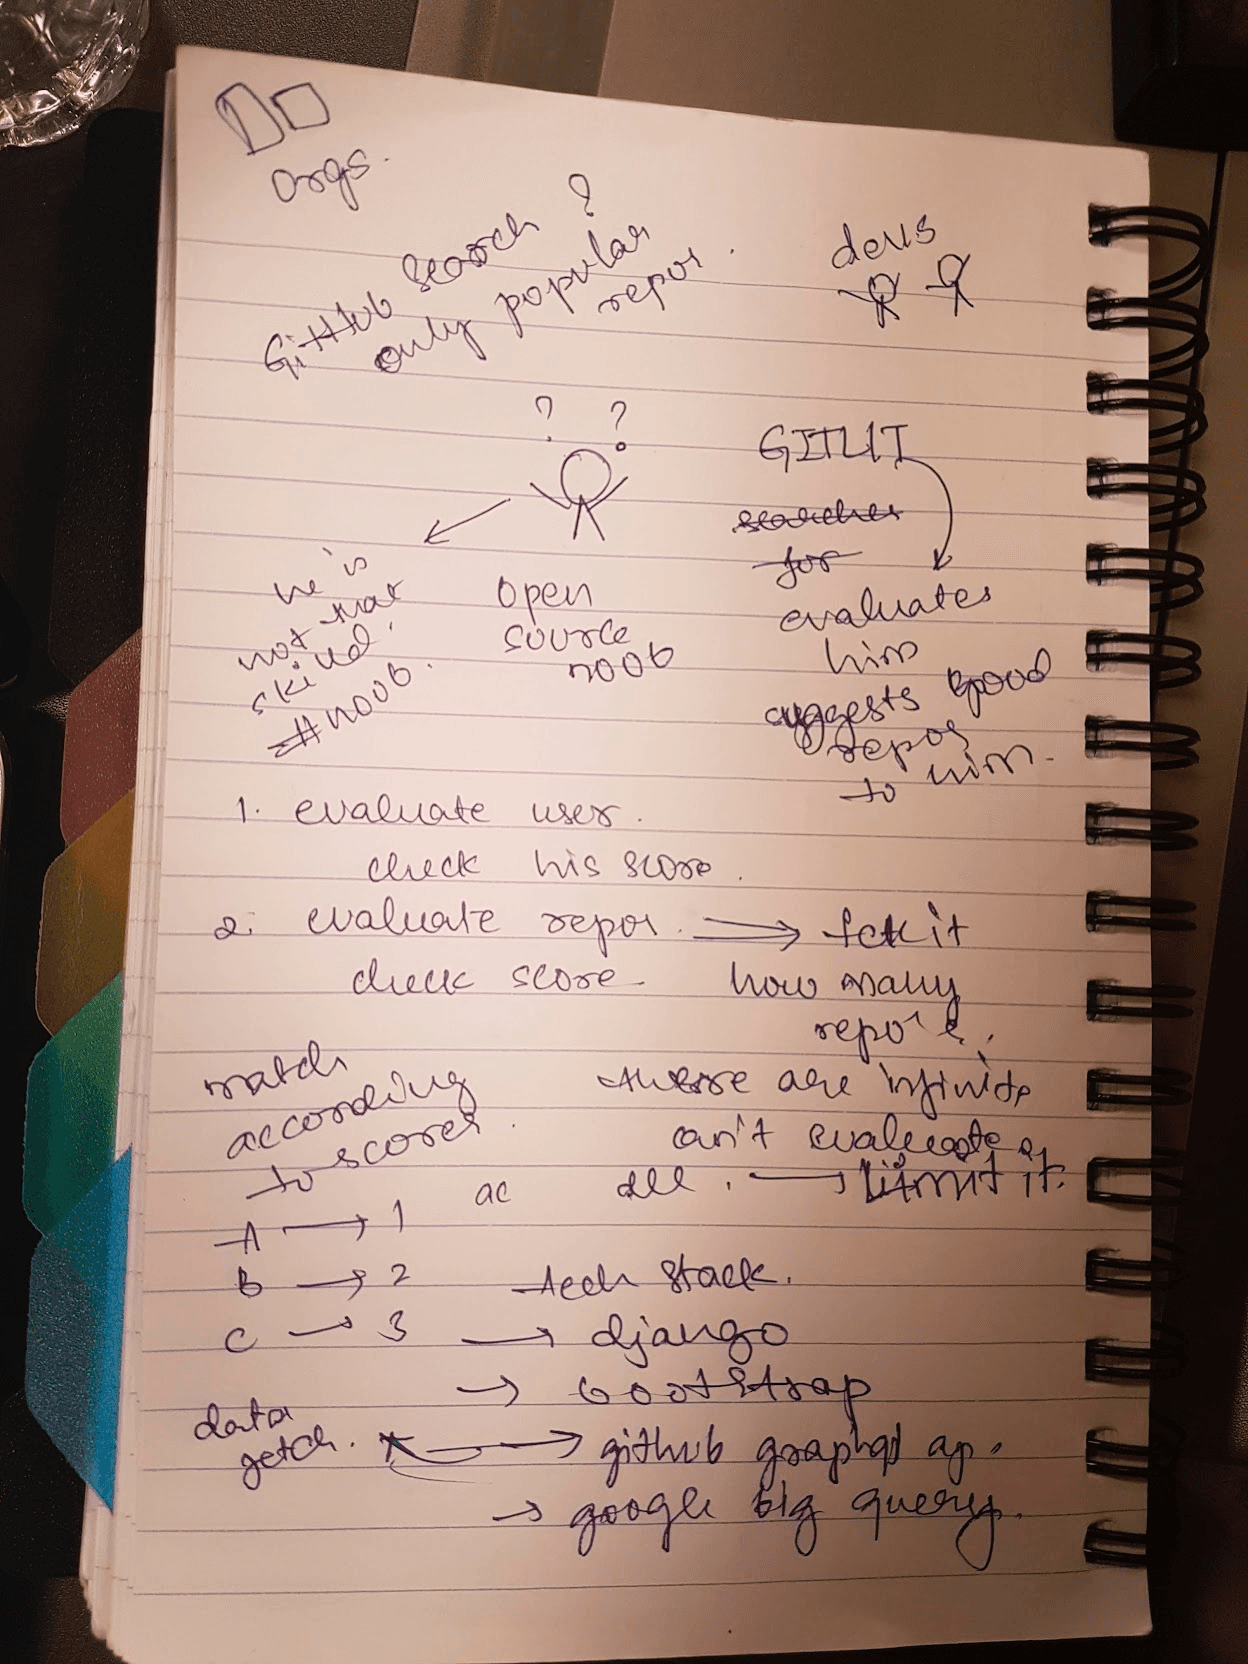 orgs.
GitHub search ?
only popular
repos.
devs
? ?
GITLIT
searches
for
evaluates
him
suggests good
repos
to him.
he is
not that
skilled.
#noob.
open
source
noob
1. evaluate user.
check his score.
2. evaluate repos.
check score.
how many
repo's.
there are infinite
can't evaluate
all. → limit it.
match
according
to scores.
ac
A → 1
B → 2
C → 3
tech stack.
→ django
→ bootstrap
data
fetch.
→ github graphql ap.
→ google big query.